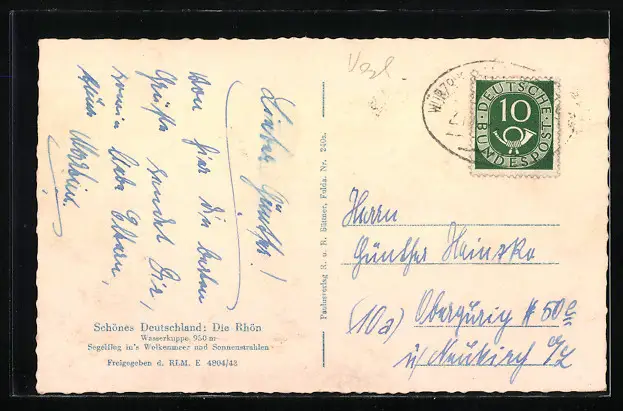 Lieber Günther!
Von hier die besten
Grüße sendet Dir,
sowie liebe Eltern,
Schönes Deutschland: Die Rhön
Wasserkuppe 950 m
Segelflug in's Wolkenmeer und Sonnenstrahlen
Freigegeben d. RLM. E 4804/42
Paulusverlag K. u. R. Büttner, Fulda. Nr. 240a.
DEUTSCHE
10
BUNDESPOST
Herrn
Günther Heinzke
(10a) Obergurig # 50e
ü/Neukirch